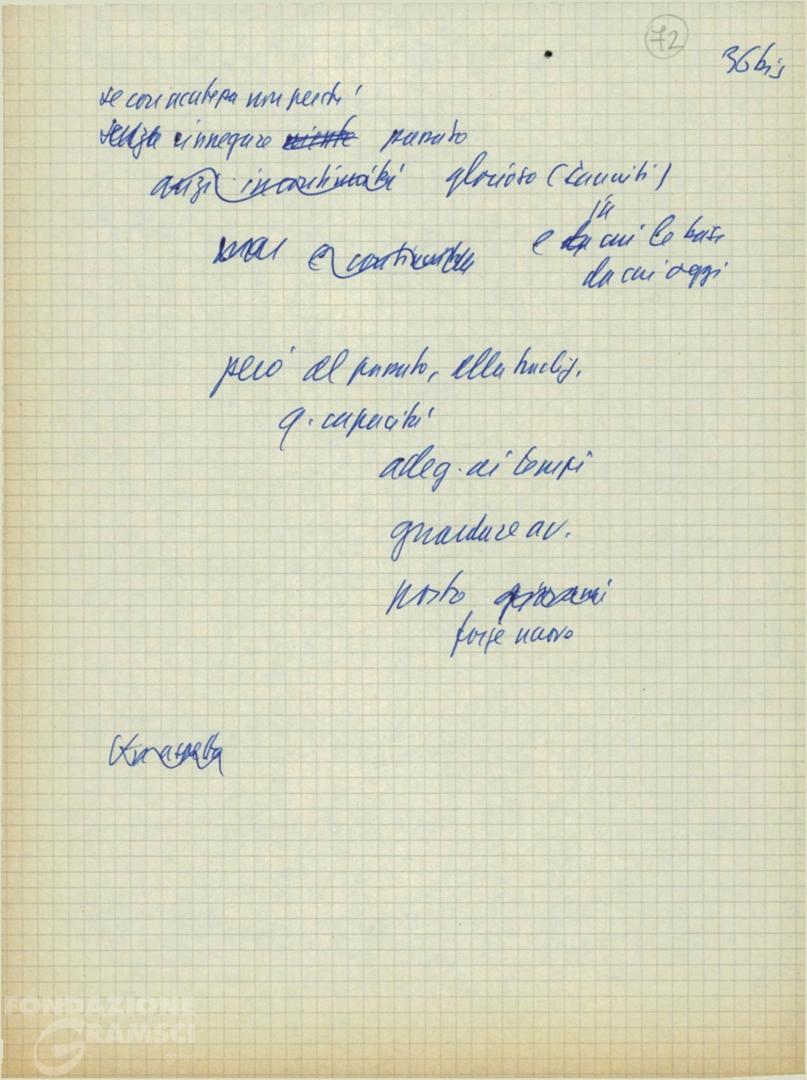 72
36 bis
se con acutezza non perché
senza rinnegare niente passato
anzi in continuità glorioso (
in
ma è continuità e da cui le basi
da cui oggi
però al passato, alla tradiz.
q. capacità
adeg. ai tempi
guardare av.
posto giovani
forze nuove
FONDAZIONE
GRAMSCI